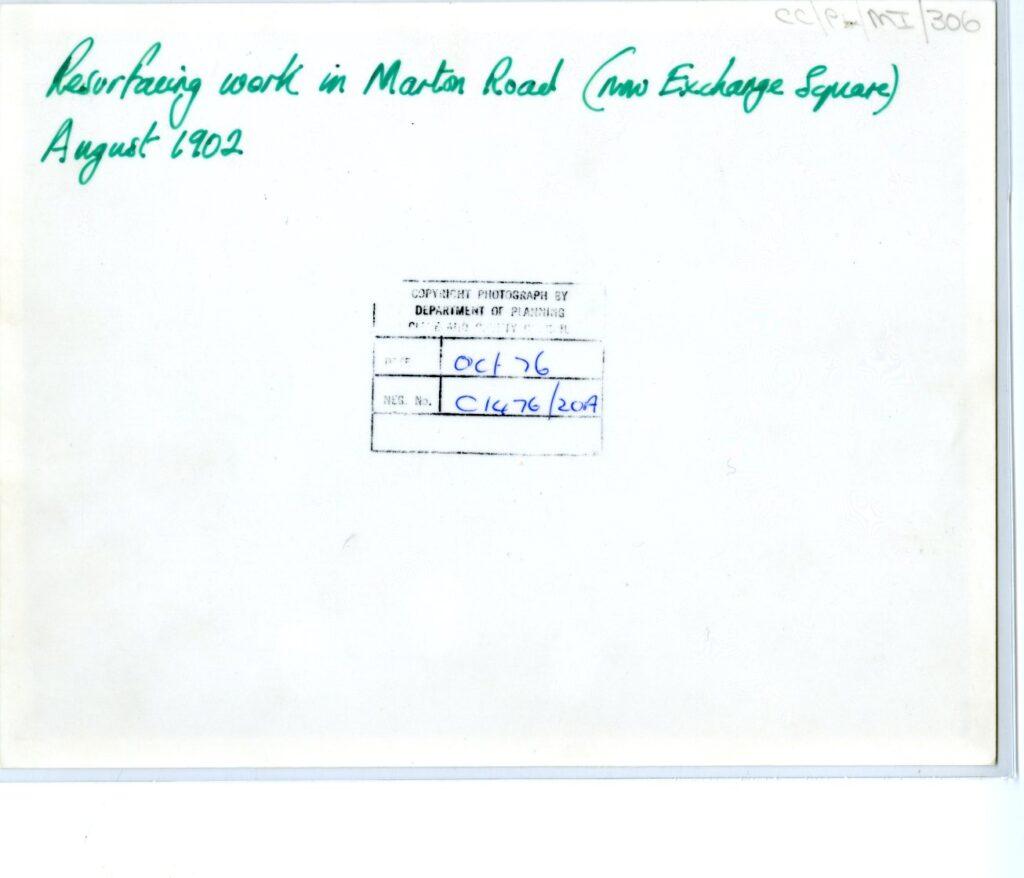 CC/P-/MI/306
Resurfacing work in Marton Road (now Exchange Square)
August 1902
COPYRIGHT PHOTOGRAPH BY
DEPARTMENT OF PLANNING
AND
DATE Oct 76
NEG. No. C1476/20A